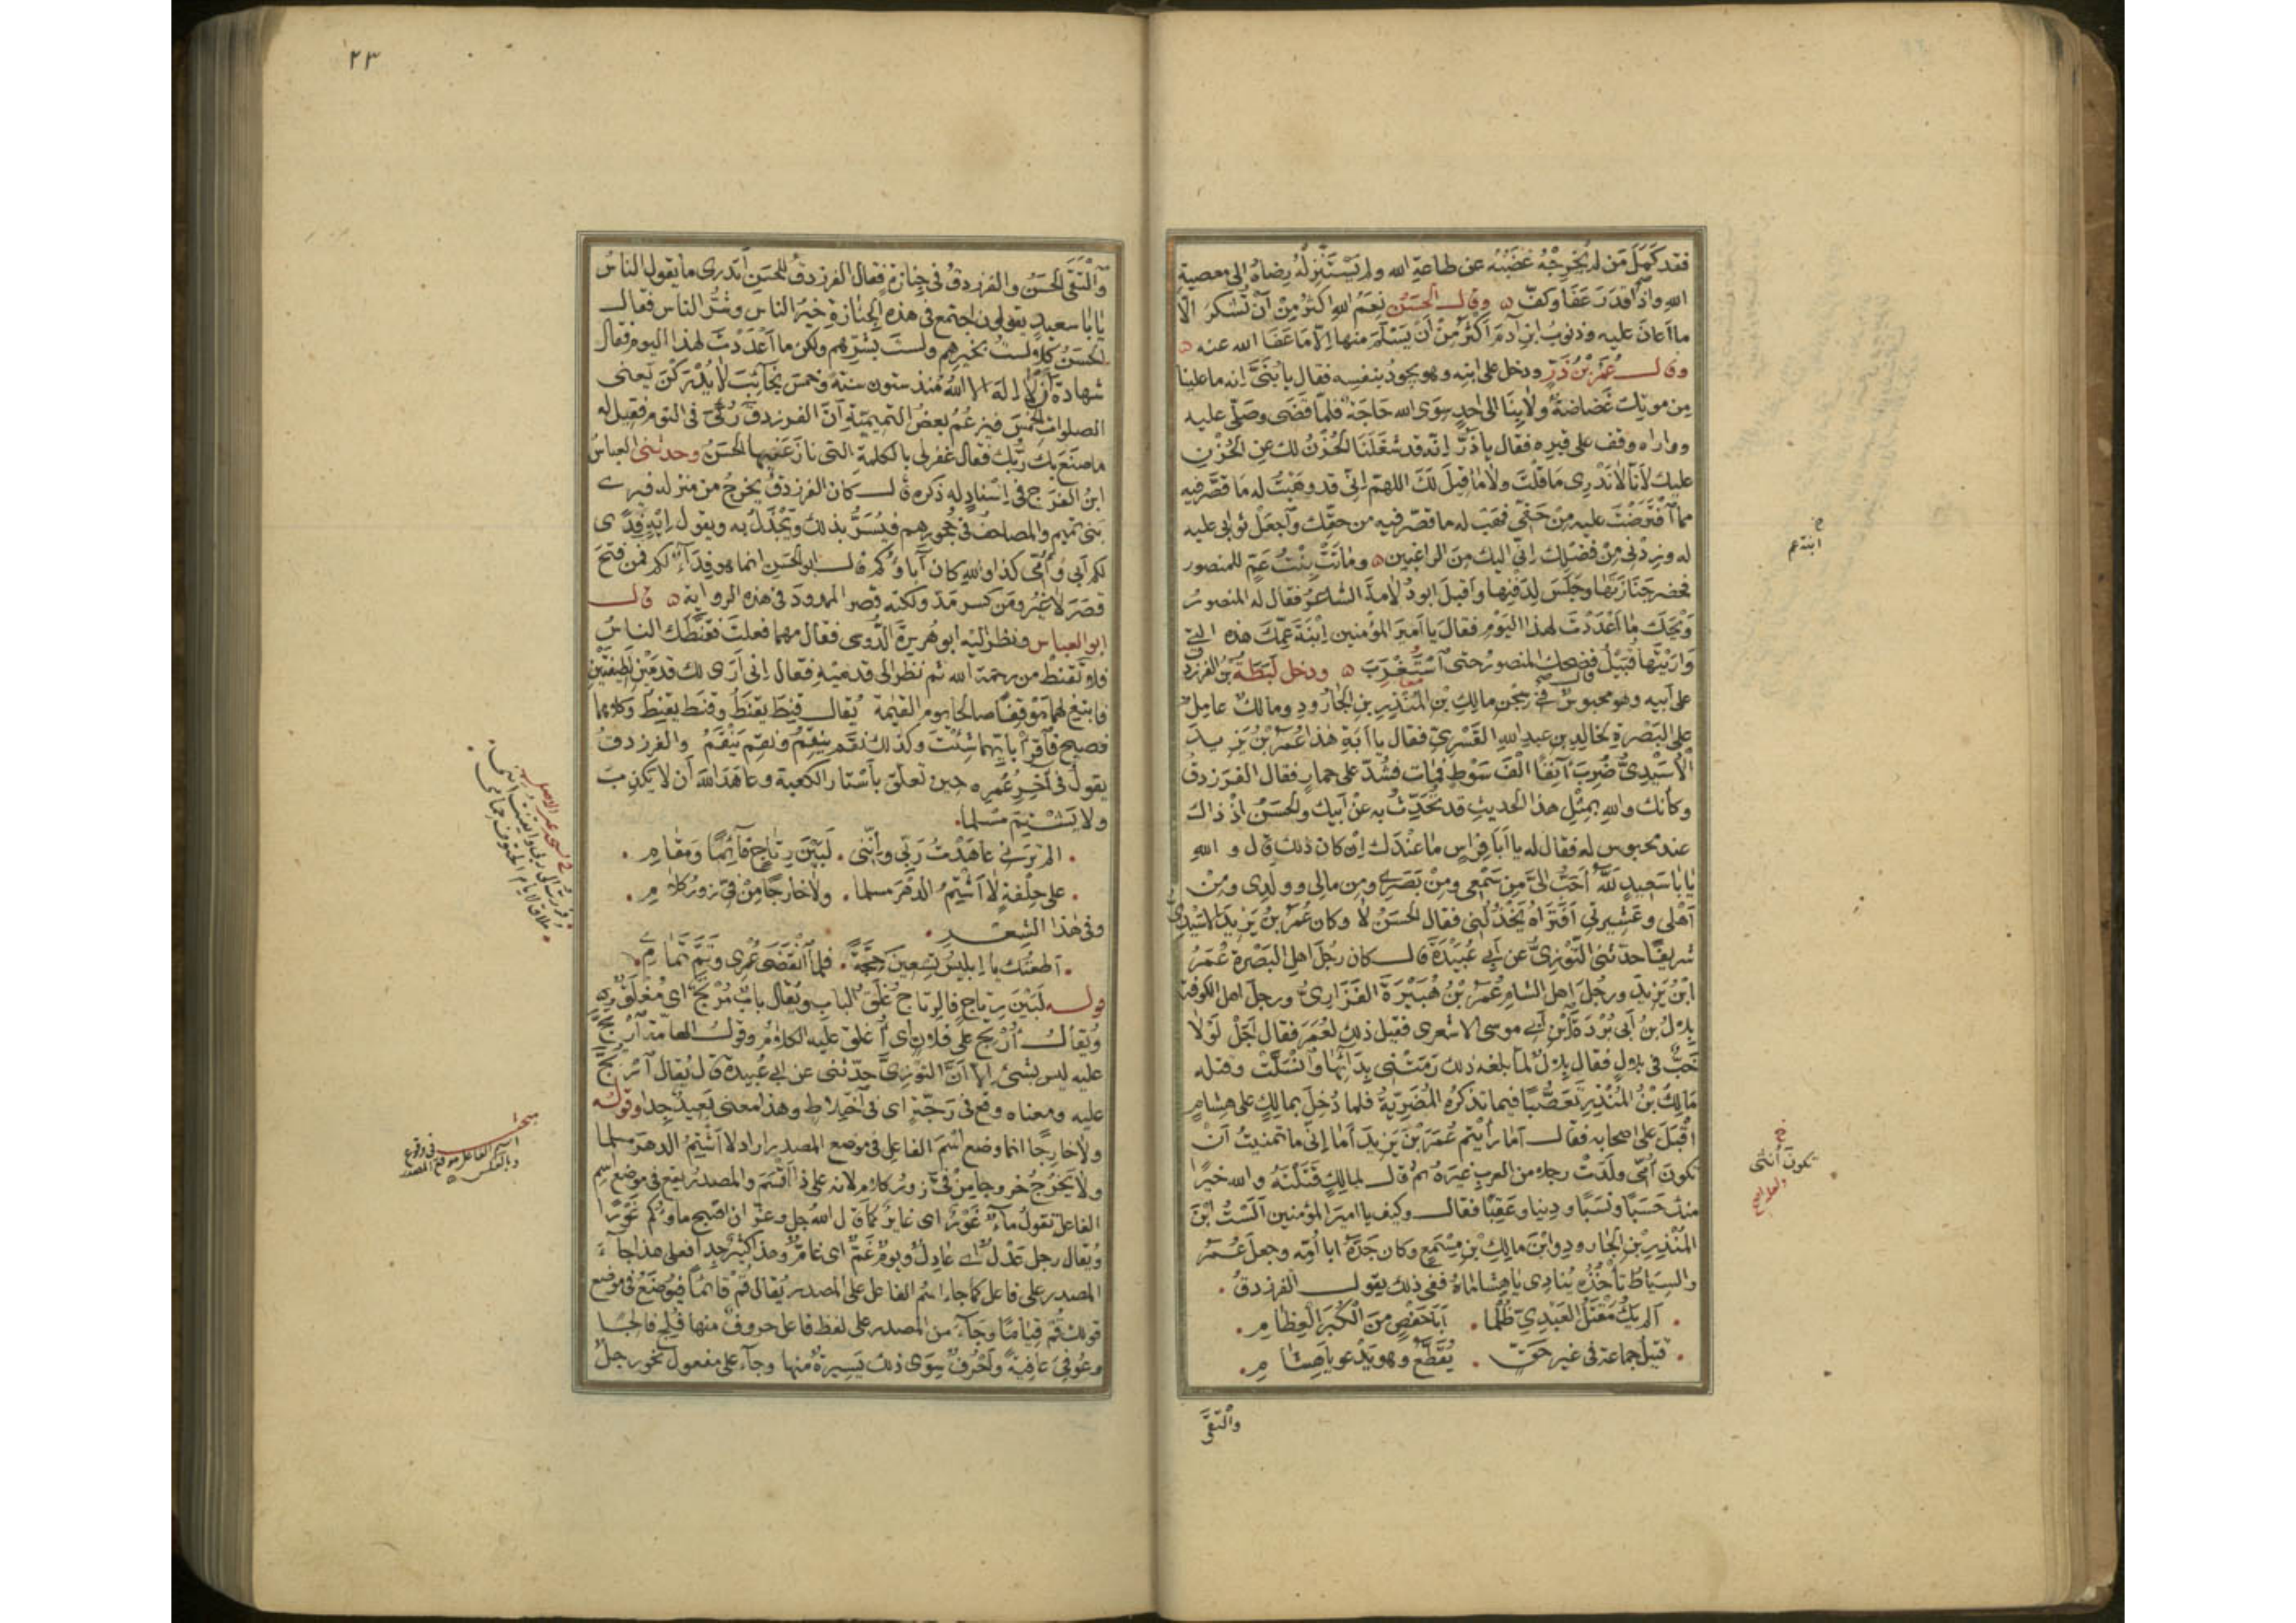 فقد كَمُلَ مَن لم يُخرِجْهُ غضَبُه عن طاعةِ الله ولم يَسْتَنْزِلْهُ رِضاهُ الى معصيةِ
اللهِ واذا قدَرَ عَفَا وكَفّ ه وقال الحَسَنُ نِعَمُ اللهِ اكثرُ مِنْ أنْ تُشكرَ الّا
ما اَعانَ عليه وذنوبُ ابنِ آدمَ اَكثرُ مِنْ اَنْ يَسْلَمَ منها اِلّا مَا عَفَا الله عنه ه
وقال عُمَرُ بْنُ ذَرّ ودخل على ابنِه وهو يجودُ بنفسِه فقال يا بُنَىَّ اِنه ما علينا
مِن موتِك غَضاضةٌ ولا بِنَا الى احدٍ سِوَى الله حَاجَة فلمّا قَضَى وصَلّى عليه
وواراه وقف على قبره فقال يا ذَرُّ اِنّه قد شغَلَنَا الحُزْنُ لك عن الحُزْنِ
عليك لأنّا لا نَدْرِى مَا قُلْتَ ولا ما قِيلَ لَكَ اللهم اِنّى قد وهَبْتُ له مَا قصَّر فيه
مما افْتَرَضْتَ عليه مِنْ حَقّى فهَبْ له ما قصّر فيه من حقّك واجعَلْ ثوابى عليه
له وزِدْنى مِنْ فَضْلِك اِنّى اليك مِنَ الراغبين ه وماتَتْ بِنْتُ عَمٍّ للمنصور
فحضر جَنَازَتَها وجَلَسَ لِدَفنِها واَقبلَ ابو دُلامةَ الشاعرُ فقال له المنصورُ
وَيْحَكَ ما اَعْدَدْتَ لهذا اليَوْمِ فقالَ يا اَميرَ المؤمنين اِبْنَةَ عَمِّكَ هذه التى
وَارَيْتَها قُبَيْلُ فضحك المنصورُ حتى اسْتَغْرَبَ ه ودخل لَبَطَةُ بْنُ الفرزدق
على اَبيه وهو محبوسٌ فى سِجْنِ مالِكِ بْنِ المُنْذِرِ بنِ الجارُودِ ومالكٌ عامِلٌ
على البَصْرةِ لخالِدِ بن عبدِ اللهِ القَسْرِىّ فقال يا اَبَةِ هذا عُمَرُ بْنُ يَزِيدَ
الاُسَيْدِىُّ ضُرِبَ آنِفًا اَلْفَ سَوْطٍ فمَات فشُدّ على حمارٍ فقال الفَرَزدقُ
وكأنك واللهِ بِمِثْلِ هذا الحديثِ قد تُحُدِّثَ به عَنْ اَبيك والحَسَنُ اِذْ ذاك
عند محبوس له فقال له يا اَبَا فِرَاسٍ ما عِنْدَك اِن كان ذلك قال و اللهِ
يا بَا سَعيدٍ لَلّهُ اَحَبُّ اِلىَّ مِن سَمْعى ومِنْ بَصَرِى ومِن مالى وولَدِى ومِنْ
اَهْلى وعَشِيرتى اَفَتَرَاهُ يَخْذُلُنِى فقال الحَسَنُ لا وكان عُمَرُ بنُ يَزِيدَ الاُسَيْدِىُّ
شَريفًا حدّثنى التَّوَّزِىُّ عن اَبى عُبَيْدَةَ قال كان رَجُلَ اهلِ البَصْرةِ عُمَرُ
ابْنُ يَزِيدَ ورجُلَ اهلِ الشامِ عُمَرُ بْنُ هُبَيْرَةَ الفَزَارِىُّ ورجلَ اهل الكوفة
بِلالُ بنُ اَبى بُرْدَةَ بْنِ اَبى موسى الاشعرى فقيل ذلك لعُمَرَ فقال اَجَلْ لَوْلا
خَبٌّ فى بلالٍ فقال بِلالٌ لَمّا بلغه ذلك رَمَتْنِى بِدَائِهَا وانْسَلّتْ وقتله
مَالِكُ بْنُ المُنْذِرِ تَعَصُّبًا فيما تذكرُه المُضَرِيَّةُ فلما دُخِلَ بمالِكٍ على هِشامٍ
اَقْبَلَ على اصحابه فقال اَمَا رأيتم عُمَرَ بْنَ يَزيدَ اَمَا اِنّى ما تمنيتُ اَنْ
تكونَ اُمّى ولَدَتْ رجلا من العربِ غيرَهُ ثم قال لمالِكٍ قَتَلْتَهُ والله خيرًا
منك حَسَبًا ونَسَبًا ودينا وعَقِبًا فقال وكيف يا امير المؤمنين اَلَسْتُ ابْنَ
المُنْذِرِ بنِ الجارودِ وابْنَ مالِكِ بْنِ مِسْمَعٍ وكان جَدَّهُ ابا اُمِّه وجعل عُمَرُ
والسِيَاطُ تأخُذُه يُنادِى يا هِشاماهُ ففى ذلك يقول الفرزدقُ .
. اَلم يَكُ مَقْتَلُ العَبْدِىّ ظُلْمًا . اَبَا حَفْصٍ مِنَ الكُبَرِ العِظامِ .
. قتيلُ جماعة فى غيرِ حَقّ . يُقَطَّعُ وهو يَدْعُو يا هِشامِ .
والْتَقَى
ابنة عم
تكونَ أُنثى
٢٣
والْتَقَى الحَسَنُ والفرزدقُ فى جِنازةٍ فقال الفرزدقُ للحَسَنِ اَتدرى ما يقولُ الناسُ
يا بَا سعيدٍ يقولون اجتمع فى هذه الجِنازةِ خَيْرُ الناسِ وشَرُّ الناس فقال
الحَسَنُ كَلّا لستُ بخيرِهم ولستَ بشَرِّهم ولكن ما اَعْدَدْتَ لهذا اليوم فقال
شهادةَ اَنْ لا اِلهَ الا اللهُ مُنذ ستون سنةً وخمسَ نَجائِبَ لا يُدْرَكْنَ يعنى
الصلواتِ الخمسَ فيزعُمُ بعضُ التميميّةِ اَنّ الفرزدقَ رُئِىَ فى النوم فقيل له
ما صَنَعَ بك رَبُّك فقال غفر لى بالكلمةِ التى نازَعَنِيها الحَسَنُ وحدثنى العباسُ
ابنُ الفَرَجِ فى اِسْنادٍ له ذكره قال كان الفرزدقُ يخرجُ من منزله فيرى
بَنى تميم والمصاحفُ فى حُجورِهم فيُسَرُّ بذلك ويَجْذَلُ به ويقول اِيهٍ فِدًى
لكم اَبى وأُمّى كذا واللهِ كان آباؤُكم قال ابو الحَسَنِ انما هو فِدَآءٌ لكم فمن فتَحَ
قصَرَ لا غيرُ ومَن كسر مَدَّ ولكنه قصر الممدودَ فى هذه الرواية ه قال
ابو العباس ونظر اليه ابو هُرَيرةَ الدَّوْسى فقال مهما فعلتَ فقَنَّطَك الناسُ
فلا تَقنَطْ من رحمة الله ثم نظر الى قدمَيْهِ فقال انى أرَى لك قدمَيْنِ لطيفتَيْنِ
فابتغِ لهما مَوْقِفًا صالحا يوم القيٰمة يُقال قَنِطَ يقنَطُ وقنَط يقنِطُ وكلاهما
فصيح فاقرَأْ بأيّهما شِئْتَ وكذلك نقَم ينقِمُ ونقِم يَنْقَمُ والفرزدقُ
يقولُ فى آخِرِ عُمُرِه حين تعلّق بأسْتارِ الكعبة وعاهَدَ اللهَ أن لا يكذِبَ
ولا يَشْتِمَ مُسْلِما.
. الم ترَنى عاهَدْتُ رَبّى وإنَّنى . لَبَيْنَ رِتاجٍ قآئِمًا ومَقامِ .
. على حِلْفةٍ لا اَشْتِمُ الدهرَ مسلما . ولا خارجًا مِنْ فِىَّ زورُ كلامِ .
وفى هذا الشِّعْرِ .
. اَطعتُك يا اِبليسُ تسعينَ حِجّةً . فلما انْقَضَى عُمْرِى وتَمَّ تَمامِى .
قوله لَبَيْنَ رِتاجٍ فالرِتاجُ غَلَقُ الباب ويُقال بابٌ مُرْتَجٌ اى مُغْلَقٌ
ويُقالُ أُرْتِجَ على فلانٍ اى أُغلق عليه الكلامُ وقولُ العامّةِ اُرْتُجَّ
عليه ليس بشئ اِلا اَنّ التوزىَّ حدّثنى عن ابى عُبيدة قال يُقال اُرْتُجَّ
عليه ومعناه وقع فى رَجَّةٍ اى فى اختلاط وهذا معنى بَعيدٌ جدا وقوله
ولا خارِجًا انما وضع اسْمَ الفاعِلِ فى موضع المصدر اراد لا اَشْتِمُ الدهرَ مسلما
ولا يَخْرُجُ خروجا مِنْ فِىَّ زورُ كلامٍ لانه على ذا اَقْسَمَ والمصدرُ يقع فى موضع اسْمِ
الفاعل تقولُ مآءٌ غَوْرٌ اى غايرٌ كما قال اللهُ جل وعزّ ان اصبح ماؤُكم غَوْرًا
ويُقال رجل عَدْلٌ اى عادِلٌ ويومٌ غَمٌّ اى غامٌّ وهذا كثيرٌ جدا فعلى هذا جآءَ
المصدر على فاعل كما جاء اسْمُ الفاعل على المصدر يُقال قُمْ قائمًا فيُوضَعُ فى موضع
قولك قُمْ قِيامًا وجآءَ من المصدر على لفظ فاعل حروفٌ منها فُلِجَ فالِجًا
وعُوفِىَ عافِيةً واَحْرُفٌ سِوَى ذلك يَسيرةٌ منها وجآءَ على مفعول نحو رجلٌ
مبحث فى وقوع
اسم الفاعل موقع المصدر
وبالعكس